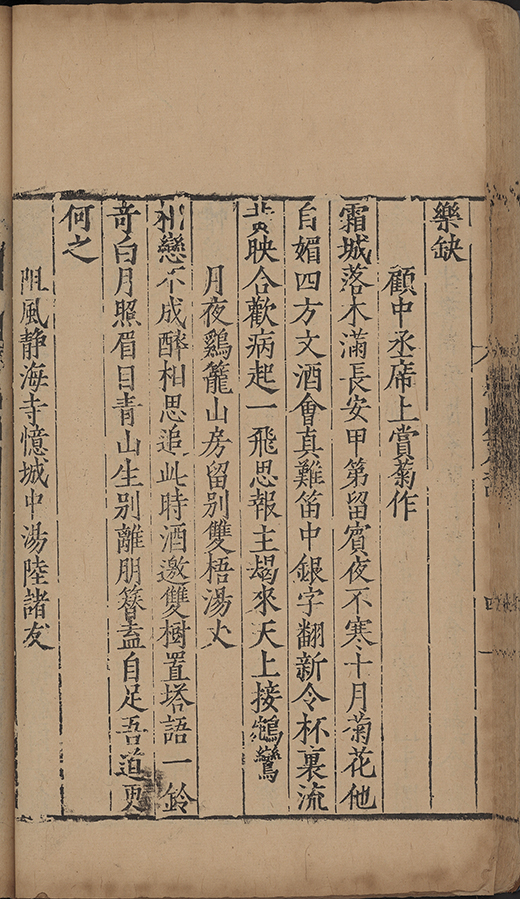 樂缺
顧中丞席上賞菊作
霜城落木滿長安甲第留賓夜不寒十月菊花他
自媚四方文酒會真難笛中銀字翻新令杯裏流
黃映合歡病起一飛思報主朅來天上接鵷鸞
月夜鷄籠山房留別雙梧湯丈
相戀不成醉相思追此時酒邀雙樹置塔語一鈴
奇白月照眉目青山生別離朋簪盍自足吾道更
何之
阻風静海寺憶城中湯陸諸友